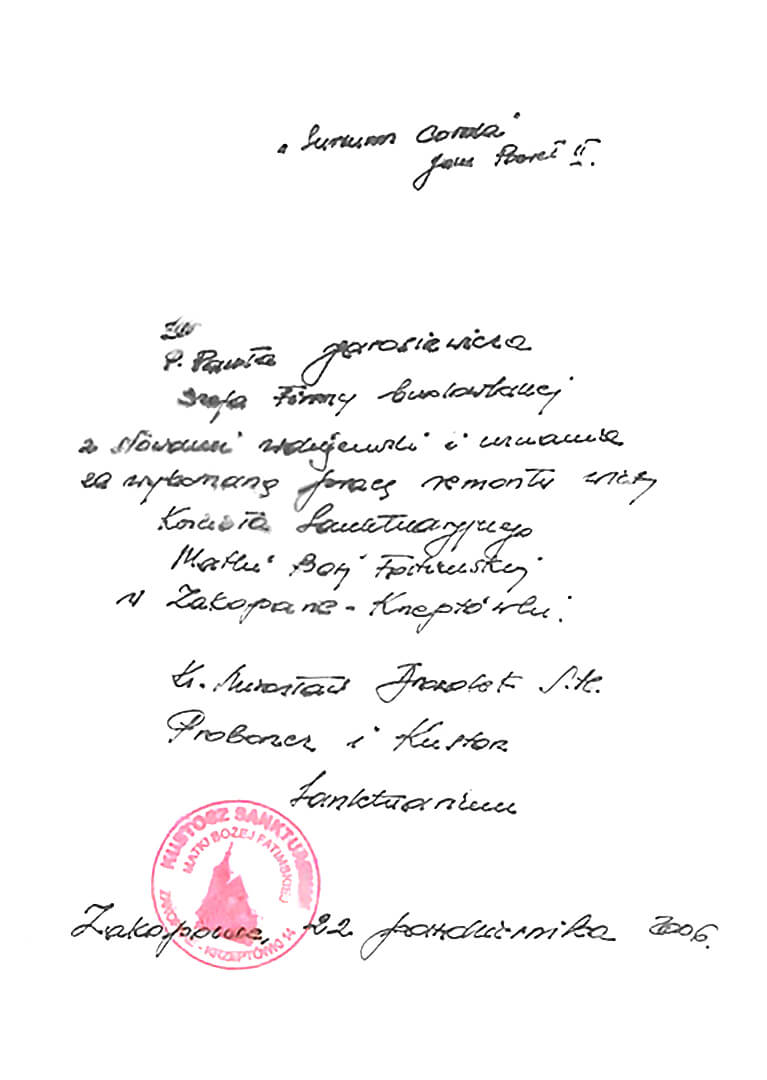 „Sursum Corda"
Jan Paweł II.
Dla
P. Pawła Jarosiewicza
Szefa Firmy budowlanej
z słowami wdzięczności i uznania
za wykonaną pracę remontu wieży
Kościoła Sanktuaryjnego
Matki Bożej Fatimskiej
w Zakopane - Krzeptówki.
Ks. Mirosław Drozdek S.A.C.
Proboszcz i Kustosz
Sanktuarium
KUSTOSZ SANKTUARIUM
MATKI BOŻEJ FATIMSKIEJ
ZAKOPANE - KRZEPTÓWKI 14
Zakopane, 22 października 2006.